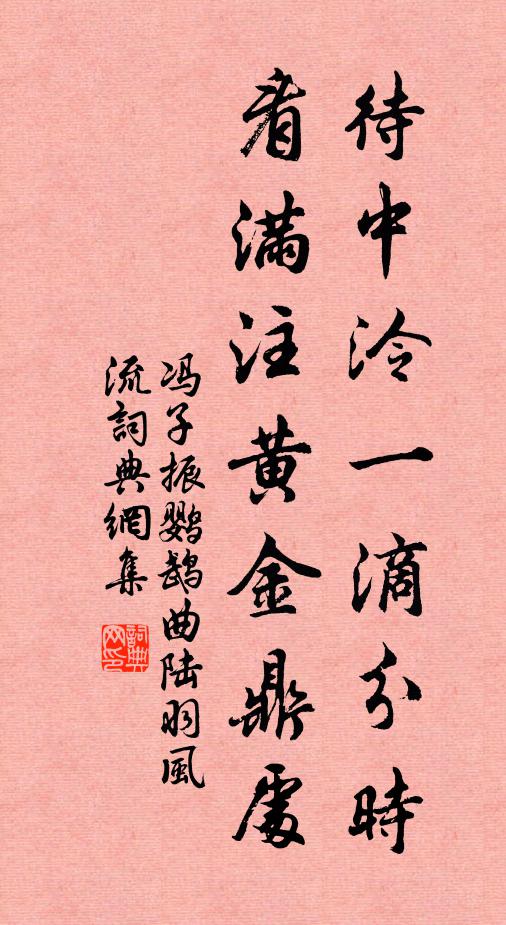 待中泠一滴分時
看滿注黄金鼎處
冯子振鹦鹉曲陆羽風
流詞典網集
詞典网印